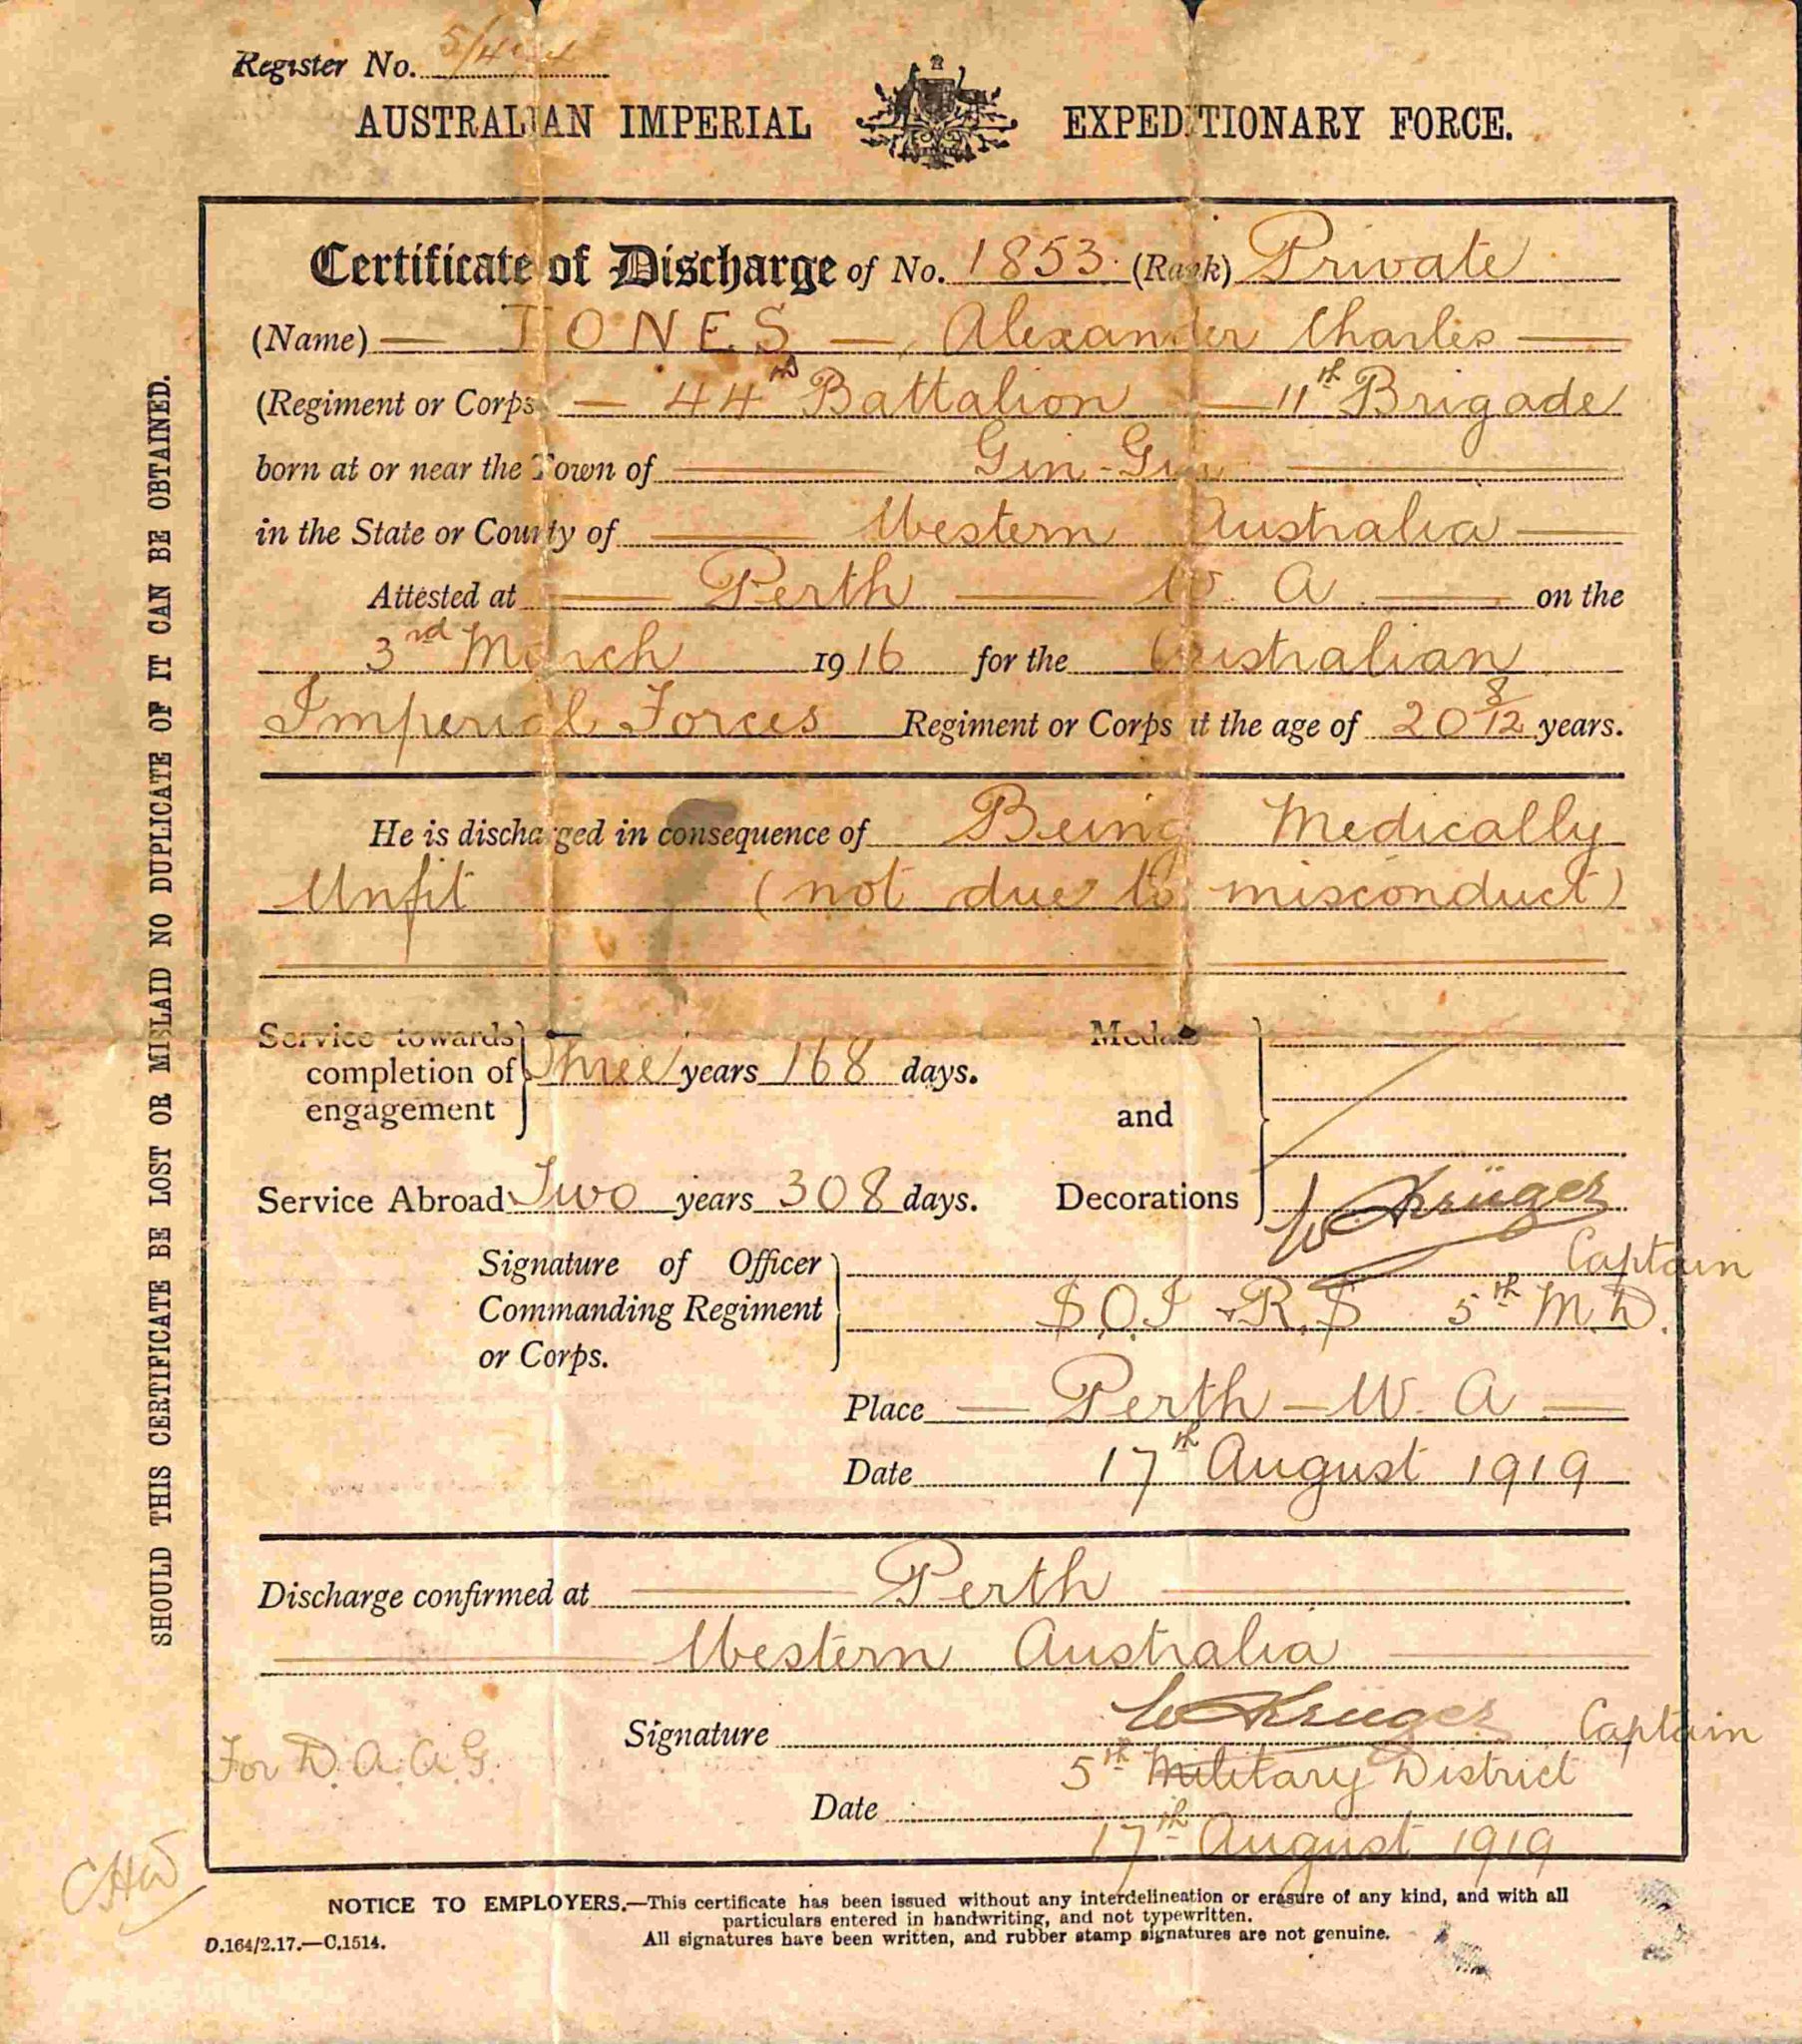 Register No.
AUSTRALIAN IMPERIAL EXPEDITIONARY FORCE.
Certificate of Discharge of No. 1853. (Rank) Private
(Name) — JONES —, Alexander Charles —
(Regiment or Corps — 44th Battalion — 11th Brigade
born at or near the Town of Gin-Gin
in the State or County of Western Australia —
Attested at — Perth — W. A. — on the
3rd March 1916 for the Australian
Imperial Forces Regiment or Corps at the age of 20 8/12 years.
He is discharged in consequence of Being Medically
Unfit (not due to misconduct)
Service towards completion of engagement } Three years 168 days.
Medals and Decorations }
Service Abroad Two years 308 days.
W Krüger
Signature of Officer Commanding Regiment or Corps. } Captain
S.O.I & R.S 5th M.D.
Place — Perth — W. A —
Date 17th August 1919
Discharge confirmed at Perth
Western Australia
Signature W Krüger Captain
For D.A.A.G. 5th Military District
Date 17th August 1919
CHW
NOTICE TO EMPLOYERS.—This certificate has been issued without any interdelineation or erasure of any kind, and with all
particulars entered in handwriting, and not typewritten.
All signatures have been written, and rubber stamp signatures are not genuine.
D.164/2.17.—C.1514.
SHOULD THIS CERTIFICATE BE LOST OR MISLAID NO DUPLICATE OF IT CAN BE OBTAINED.